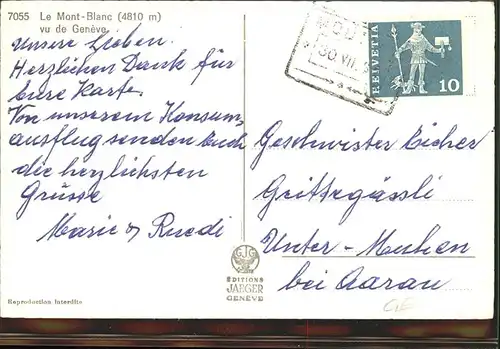 7055 Le Mont-Blanc (4810 m)
vu de Genève
Unsere Lieben.
Herzlichen Dank für
Eure Karte.
Von unserem Konsum,
ausflug senden Euch
die herzlichsten
Grüsse
Marie & Ruedi
Reproduction Interdite
EDITIONS
JAEGER
GENÈVE
30 VII
HELVETIA
10
Geschwister Eicher
Unter-Muhen
bei Aarau